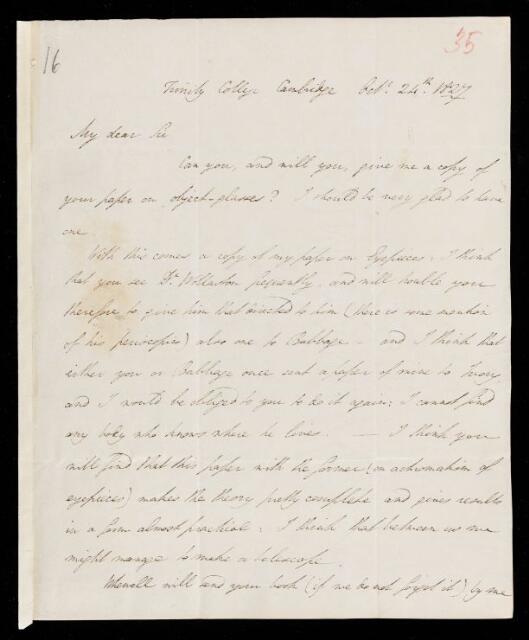 16
35
Trinity College Cambridge Oct. 24th. 1827
My dear Sir
Can you, and will you, give me a copy of
your paper on object-glasses? I should be very glad to have
one.
With this comes a copy of my paper on Eyepieces. I think
that you see Dr. Wollaston frequently, and will trouble you
therefore to give him that directed to him (there is some mention
of his periscopics) also one to Babbage — and I think that
either you or Babbage once sent a paper of mine to Ivory,
and I would be obliged to you to do it again: I cannot find
any body who knows where he lives. — I think you
will find that this paper with the former (on achromatism of
eyepieces) makes the theory pretty complete and gives results
in a form almost practical: I think that between us we
might manage to make a telescope.
Whewell will send your book (if we do not forget it) by me